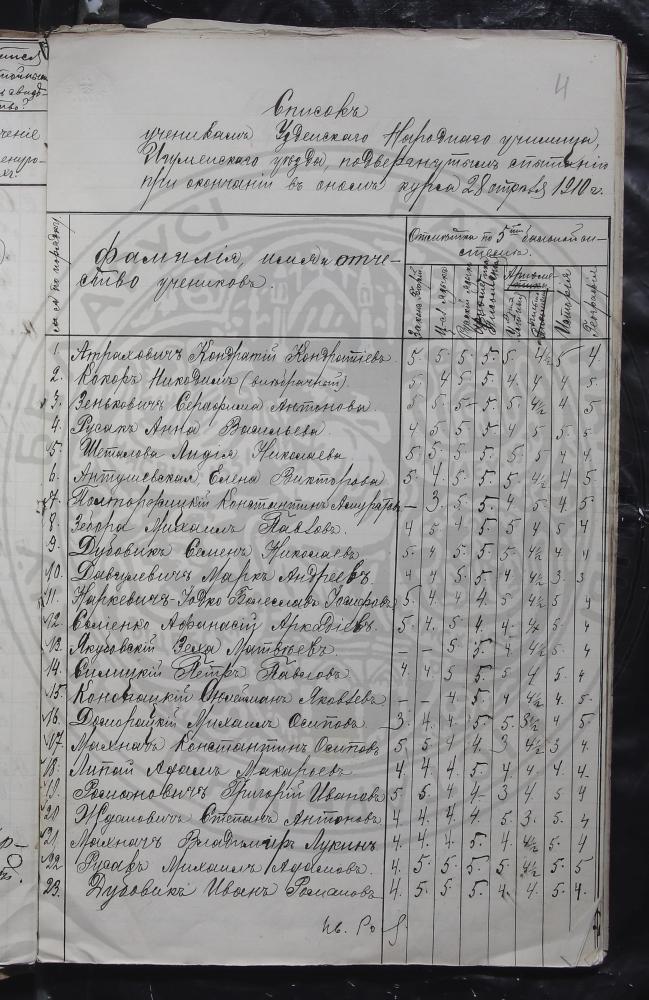 4
Списокъ
ученикамъ Узденскаго Народнаго училища,
Игуменскаго уѣзда, подвергнутымъ
при окончаніи въ ономъ курса 28 1910 г.
№№ по порядку
Фамилія, имя и отче-
ство учениковъ.
Отмѣтка по 5ти бальной си-
стемѣ.
Закона Божій
Ц-сл. языка
Русскій языкъ
Исторія
Географія
1. Атраховичъ Кондратій Кондратіевъ. 5 5 5 5 5 4½ 5 4
2. Кокоръ Никодимъ 5 4 5 5 4 4 4 5
3. Зеньковичъ Серафима Антонова 5 5 5 5 5 4½ 4 5
4. Русакъ Анна Васильева 4 5 5 5 4 5 5 5
5. Шеталова Лидія Николаева 5 5 5 5 5 5 4 4
6. Антушевская Елена Викторова 5 4 5 5 5 4½ 4 5
7. Константинъ — 3 5 5 4 5 4 5
8. Михаилъ Павловъ 4 5 4 5 5 4 5 4
9. Дубовикъ Семенъ Николаевъ 5 4 5 5 5 4½ 4 4
10. Данилевичъ Маркъ Андреевъ 4 4 5 5 4 4½ 3 3
11. Наркевичъ-Іодко Болеславъ Іосифовъ 5 4 4 4 5 4½ 5 4
12. Семенко Афанасій Аркадіевъ 5 4 5 4 4 4 5 4
13. Якубовскій Зеля Матвѣевъ — — 5 5 4 4½ 5 4
14. Силицкій Петръ Павловъ 4 4 5 5 5 4 5 4
15. Конопацкій Сулейманъ Яковлевъ — — 4 5 4 4½ 4 5
16. Доморацкій Михаилъ Осиповъ 3 4 4 5 5 3½ 4 5
17. Махначъ Константинъ Осиповъ 5 5 4 4 3 4½ 3 4
18. Липай Адамъ Макарьевъ 4 4 4 5 4 4 4 4
19. Романовичъ Григорій Ивановъ 5 5 4 4 3 4 5 4
20. Ждановичъ Степанъ Антоновъ 4 4 4 4 5 3 5 4
21. Махначъ Владиміръ Лукинъ 4 4 4 5 4 4½ 5 4
22. Русакъ Михаилъ Адамовъ 4 5 5 5 5 4½ 5 5
23. Дубовикъ Иванъ Романовъ 4 5 5 5 4 4 5 4